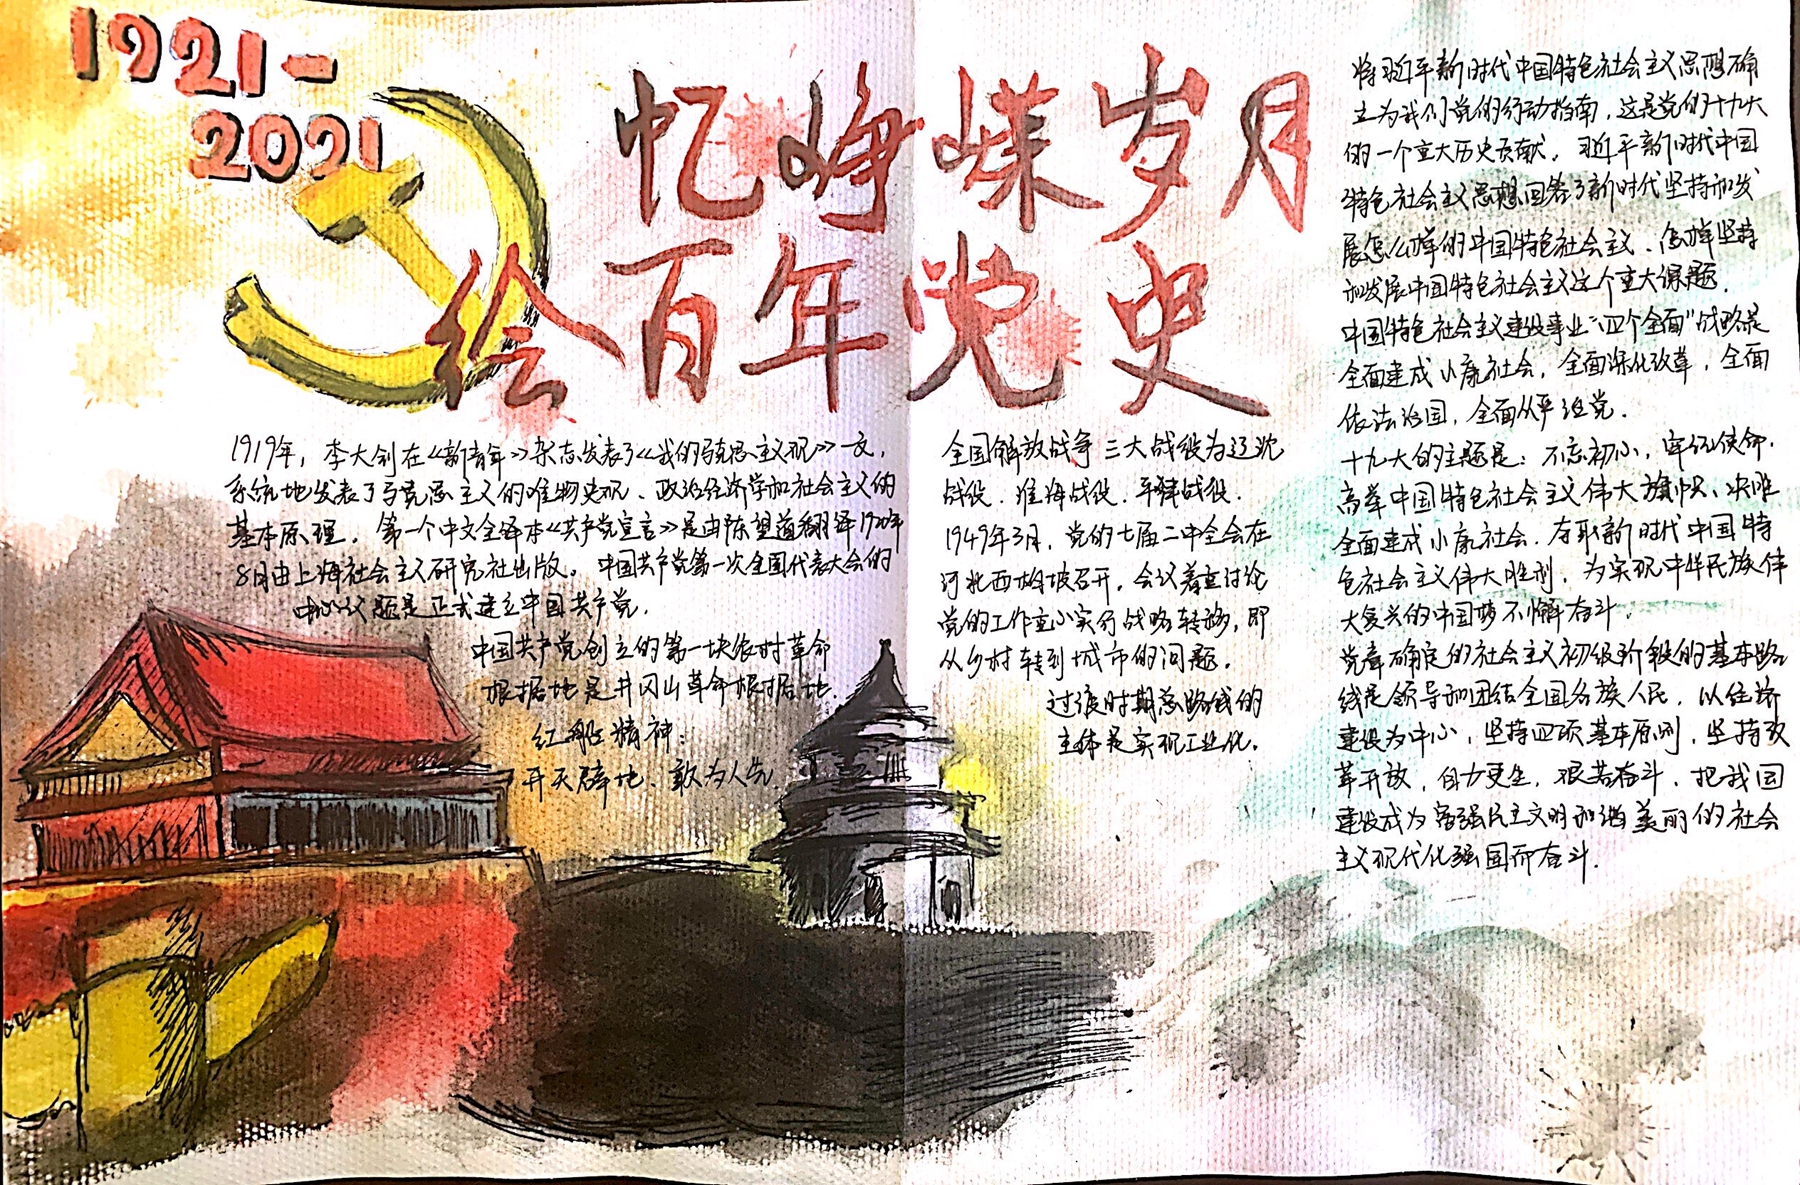 1921-
2021
忆峥嵘岁月
绘百年党史
1919年，李大钊在《新青年》杂志发表了《我的马克思主义观》一文，
系统地发表了马克思主义的唯物史观、政治经济学和社会主义的
基本原理。第一个中文全译本《共产党宣言》是由陈望道翻译1920年
8月由上海社会主义研究社出版。中国共产党第一次全国代表大会的
中心议题是正式建立中国共产党。
中国共产党创立的第一块农村革命
根据地是井冈山革命根据地.
红船精神：
开天辟地、敢为人先
全国解放战争三大战役为辽沈
战役、淮海战役、平津战役.
1949年3月，党的七届二中全会在
河北西柏坡召开，会议着重讨论
党的工作重心实行战略转移，即
从乡村转到城市的问题。
过渡时期总路线的
主体是实现工业化。
将习近平新时代中国特色社会主义思想确
立为我们党的行动指南，这是党的十九大
的一个重大历史贡献。习近平新时代中国
特色社会主义思想回答了新时代坚持和发
展怎么样的中国特色社会主义、怎样坚持
和发展中国特色社会主义这个重大课题.
中国特色社会主义建设事业"四个全面"战略是
全面建成小康社会，全面深化改革，全面
依法治国，全面从严治党.
十九大的主题是：不忘初心，牢记使命.
高举中国特色社会主义伟大旗帜、决胜
全面建成小康社会.夺取新时代中国特
色社会主义伟大胜利，为实现中华民族伟
大复兴的中国梦不懈奋斗.
党章确定的社会主义初级阶段的基本路
线是领导和团结全国各族人民，以经济
建设为中心，坚持四项基本原则，坚持改
革开放，自力更生，艰苦奋斗，把我国
建设成为富强民主文明和谐美丽的社会
主义现代化强国而奋斗.